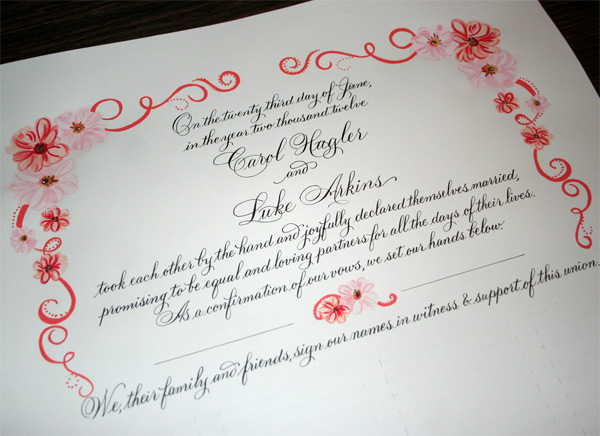 On the twenty third day of June,
in the year two thousand twelve
Carol Hagler
and
Luke Arkins
took each other by the hand and joyfully declared themselves married,
promising to be equal and loving partners for all the days of their lives.
As a confirmation of our vows, we set our hands below:
We, their family and friends, sign our names in witness & support of this union.